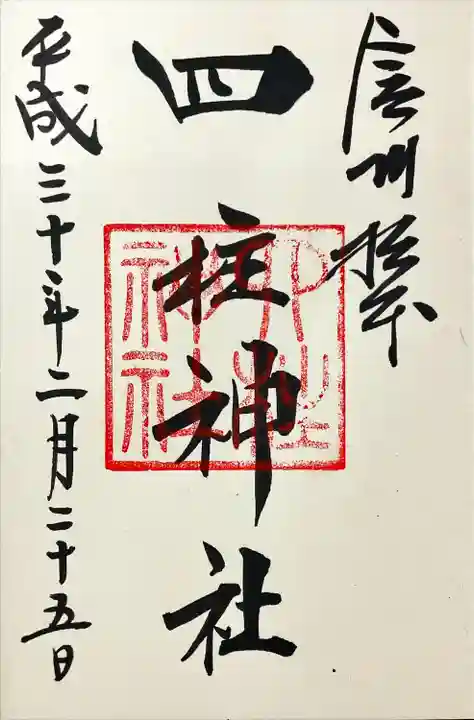 信州松本
四柱神社
平成三十年二月二十五日
四柱神社